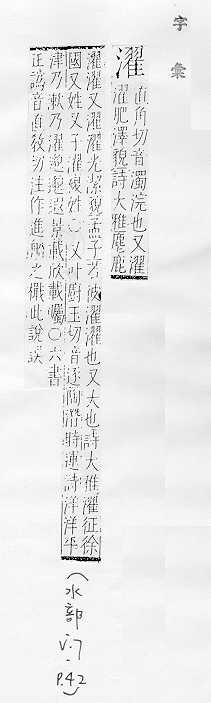 字彙
濯 直角切音濁浣也又濯
濯肥澤貌詩大雅麀鹿
濯濯又濯濯光潔貌孟子若彼濯濯也又大也詩大雅濯征徐
國又姓又子濯複姓○又叶廚玉切音逐陶潛時運詩洋洋平
津乃漱乃濯邈邈遐景載欣載矚○六書
正譌音直敎切注作進船之櫂此說誤
(水部
V.7
P.42)